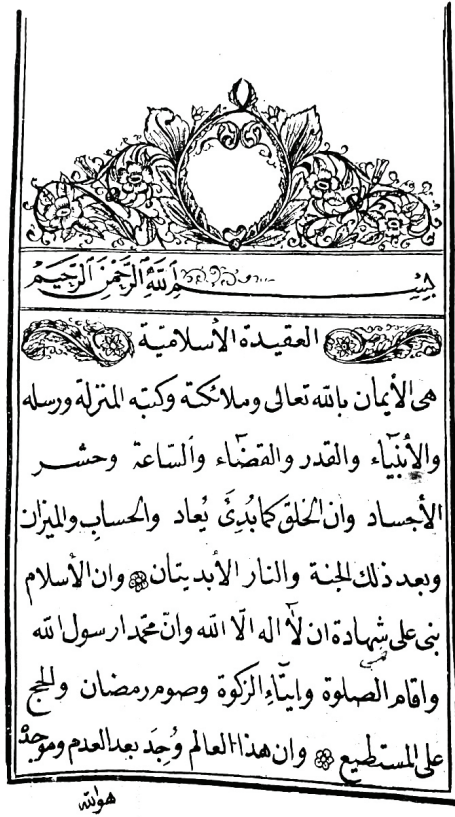 بِسْمِ ٱللَّهِ ٱلرَّحْمٰنِ ٱلرَّحِيمِ
العقيدة الأسلاميّة
هى الأيمان بالله تعالى وملائكته وكتبه المنزلة ورسله
والأنبيٓاء والقدر والقضٓاء والسّاعة وحشر
الأجساد وان الخلق كما بُدِئَ يُعاد والحساب والميزان
وبعد ذلك الجنة والنار الأبديتان وان الأسلام
بنى على شهادة ان لآ اله الّا الله وانّ محمدا رسول الله
واقام الصلوة وايتٓاء الزكوة وصوم رمضان والحج
على المستطيع وان هذا العالم وُجِدَ بعد العدم وموجدهُ
هو الله